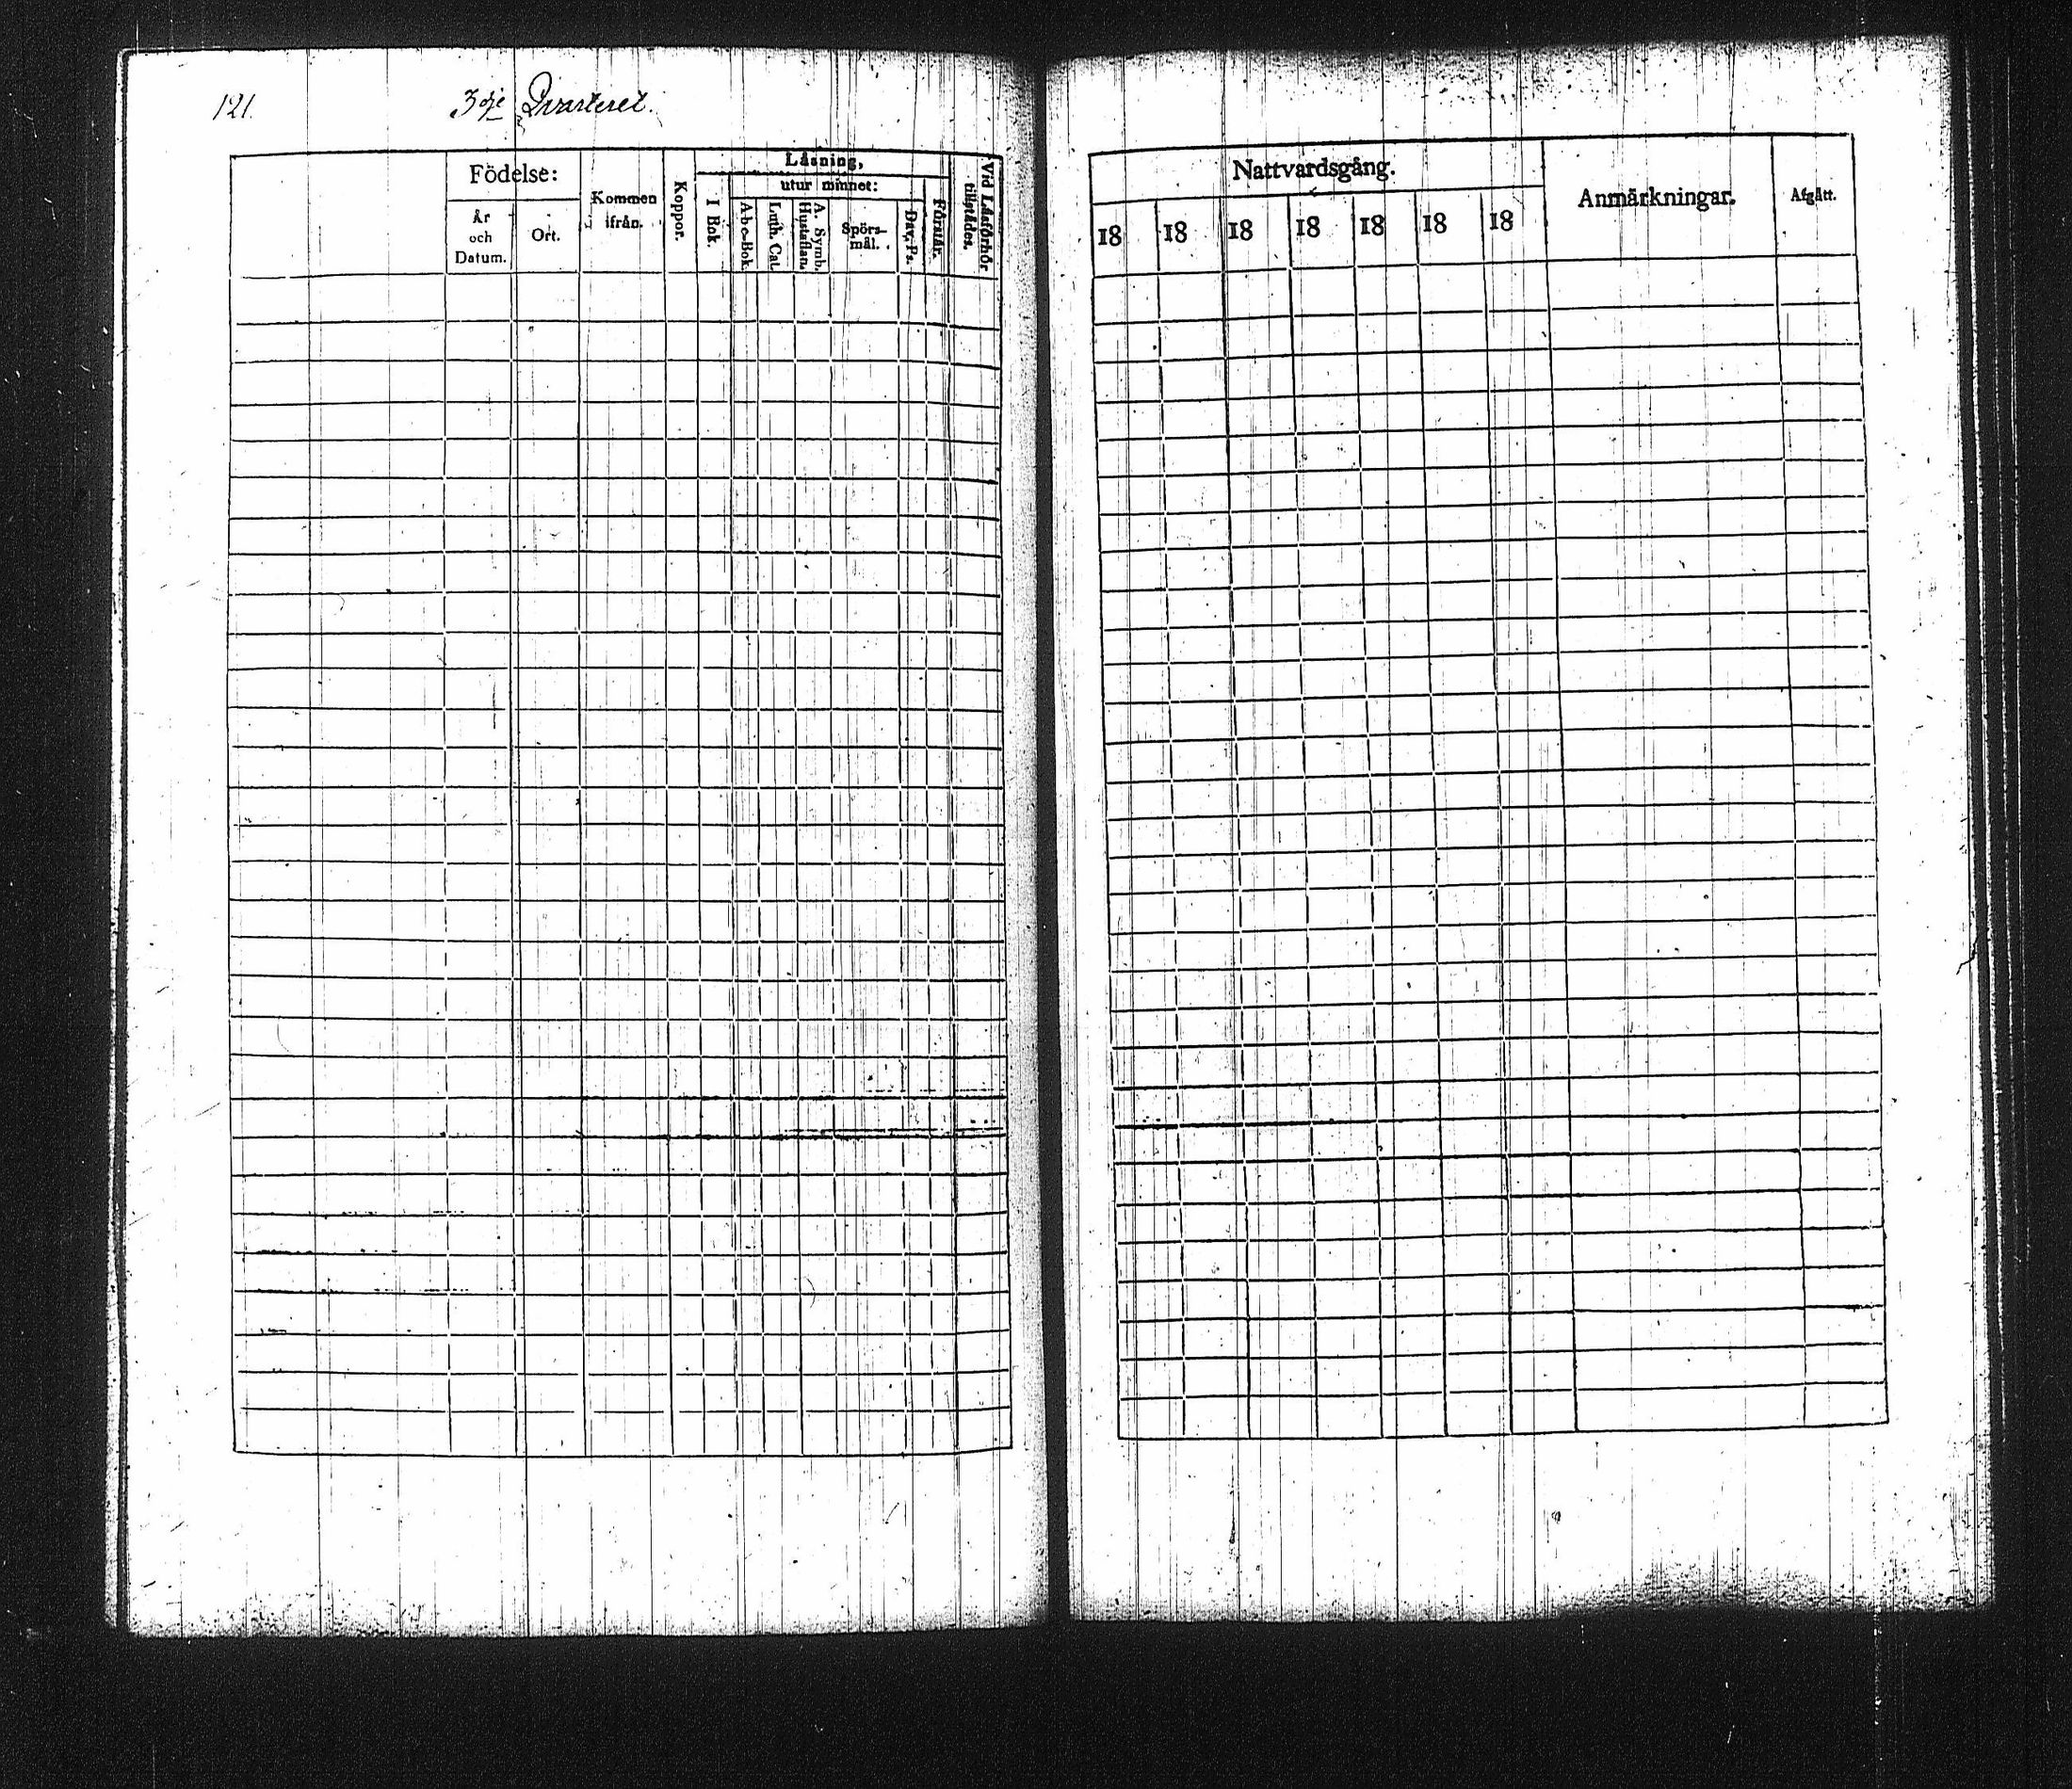 121.
3dje Qvarteret.
Födelse:
År
och
Datum.
Ort.
Kommen
ifrån.
Koppor.
Läsning,
I Bok.
utur minnet:
A-b-c-Bok.
Luth. Cat.
A. Symb.
Hustaflan.
Spörs-
mål.
Dav. Ps.
Förstår.
Vid Läsförhör
tillstädes.
Nattvardsgång.
18 18 18 18 18 18 18
Anmärkningar.
Afgått.